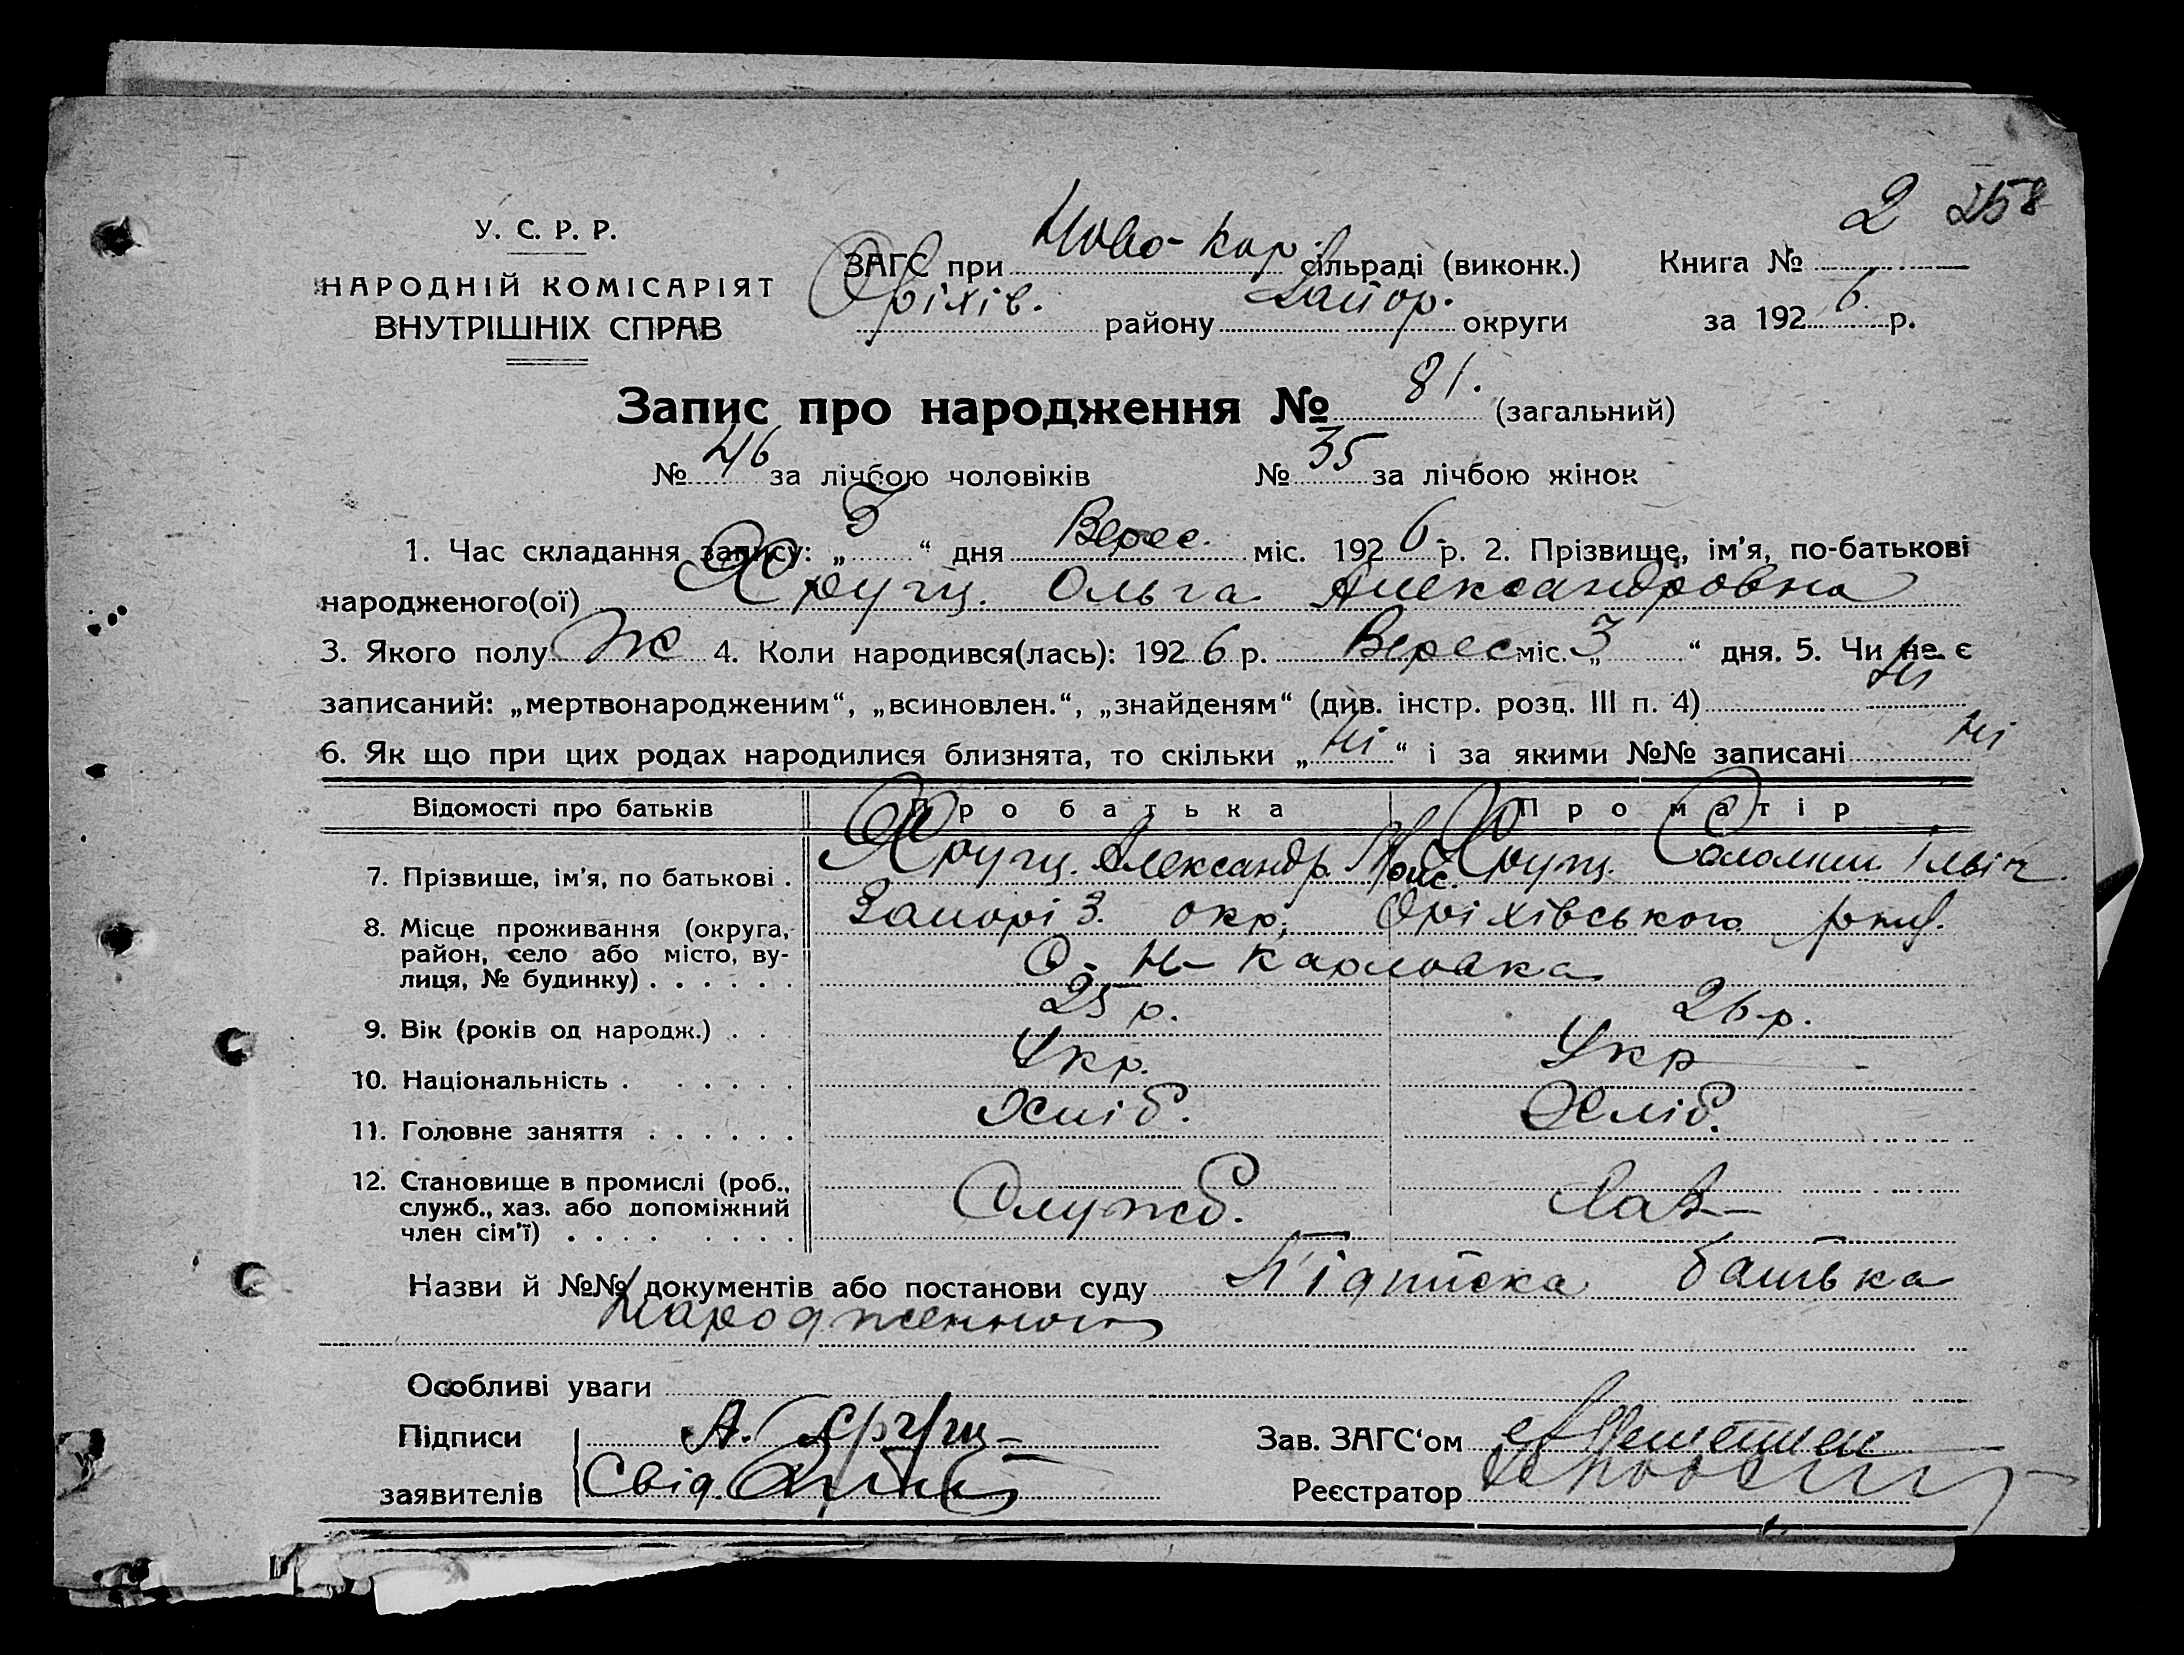 2 258
У. С. Р. Р.
НАРОДНІЙ КОМІСАРІЯТ
ВНУТРІШНІХ СПРАВ
ЗАГС при Ново-Кар. сільраді (виконк.)
Оріхів. району Запор. округи
Книга № 2
за 1926 р.
Запис про народження № 81. (загальний)
№ 46 за лічбою чоловіків № 35 за лічбою жінок
1. Час складання запису: „ “ дня Верес. міс. 1926 р. 2. Прізвище, ім’я, по-батькові
народженого(ої) Хругц. Ольга Александровна
3. Якого полу Ж 4. Коли народився(лась): 1926 р. Верес міс. „3 “ дня. 5. Чи не є
записаний: „мертвонародженим“, „всиновлен.“, „знайденям“ (див. інстр. розд. III п. 4) Ні
6. Як що при цих родах народилися близнята, то скільки „Ні“ і за якими №№ записані Ні
Відомості про батьків Про батька Про матір
7. Прізвище, ім’я, по батькові . Хругц. Александр. Хругц.
8. Місце проживання (округа, Запоріз. окр, Оріхівського
район, село або місто, ву- С- Н- Карловка
лиця, № будинку) . . . . . .
9. Вік (років од народж.) . . 25 р. 26 р.
10. Національність . . . . . . Укр. Укр
11. Головне заняття . . . . . . Хліб. Хліб.
12. Становище в промислі (роб.,
служб., хаз. або допоміжний Служб.
член сім’ї) . . . . . . . .
Назви й №№ документів або постанови суду Підписка батька
народженного
Особливі уваги
Підписи А. Хругц
заявителів Свід
Зав. ЗАГС‘ом
Реєстратор